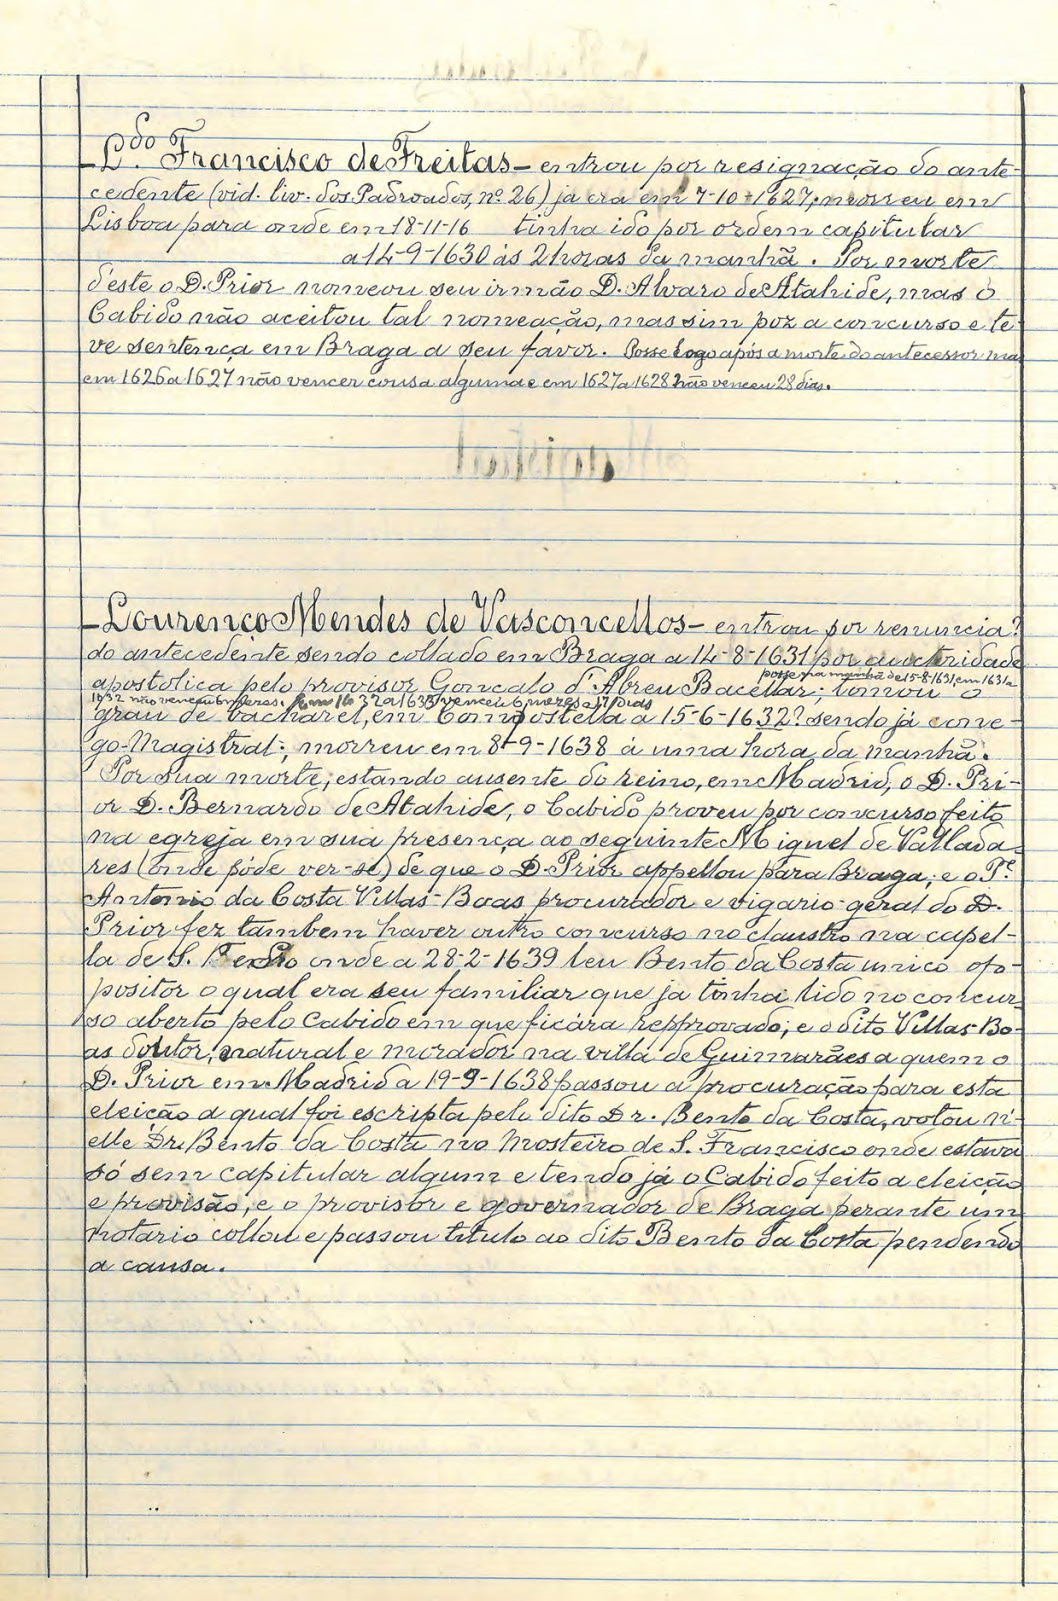 L.do Francisco de Freitas – entrou por resignação do ante-
cedente (vid. liv. dos Padroados, nº 26) já era em 7-10-1627, morreu em
Lisboa para onde em 18-11-16 tinha ido por ordem capitular
a 14-9-1630 ás 2 horas da manhã. Por morte
d'este o D. Prior nomeou seu irmão D. Alvaro de Atahide, mas o
Cabido não aceitou tal nomeação, mas sim poz a concurso e te-
ve sentença em Braga a seu favor. Posse logo após a morte do antecessor mas
em 1626 a 1627 não vencer cousa alguma e em 1627 a 1628 não venceu 28 dias.
Lourenço Mendes de Vasconcellos – entrou por renuncia?
do antecedente sendo collado em Braga a 14-8-1631 por auctoridade
posse na manhã de 15-8-1631, em 1631 a
apostolica pelo provisor Gonçalo d'Abreu Bacellar; tomou o
1632 não venceu 6 mezes. Em 1632 a 1633 venceu 6 mezes e 7 dias
grau de bacharel, em Compostella a 15-6-1632? sendo já cone-
go Magistral; morreu em 8-9-1638 á uma hora da manhã.
Por sua morte, estando ausente do reino, em Madrid, o D. Pri-
or D. Bernardo de Atahide, o Cabido proveu por concurso feito
na egreja em sua presença ao seguinte Miguel de Vallada-
res (onde póde ver-se) de que o D. Prior appellou para Braga; e o P.e
Antonio da Costa Villas-Boas procurador e vigario geral do D.
Prior fez tambem haver outro concurso no claustro na capel-
la de S. onde a 28-2-1639 leu Bento da Costa unico op-
positor o qual era seu familiar que ja tinha lido no concur-
so aberto pelo Cabido em que ficára repprovado, e o dito Villas-Bo-
as doutor, natural e morador na villa de Guimarães a quem o
D. Prior em Madrid a 19-9-1638 passou a procuração para esta
eleição a qual foi escripta pelo dito Dr. Bento da Costa, votou n'-
elle Dr. Bento da Costa no Mosteiro de S. Francisco onde estava
só sem capitular algum e tendo já o Cabido feito a eleição
e provisão, e o provisor e governador de Braga perante um
notario collou e passou titulo ao dito Bento da Costa pendendo
a causa.